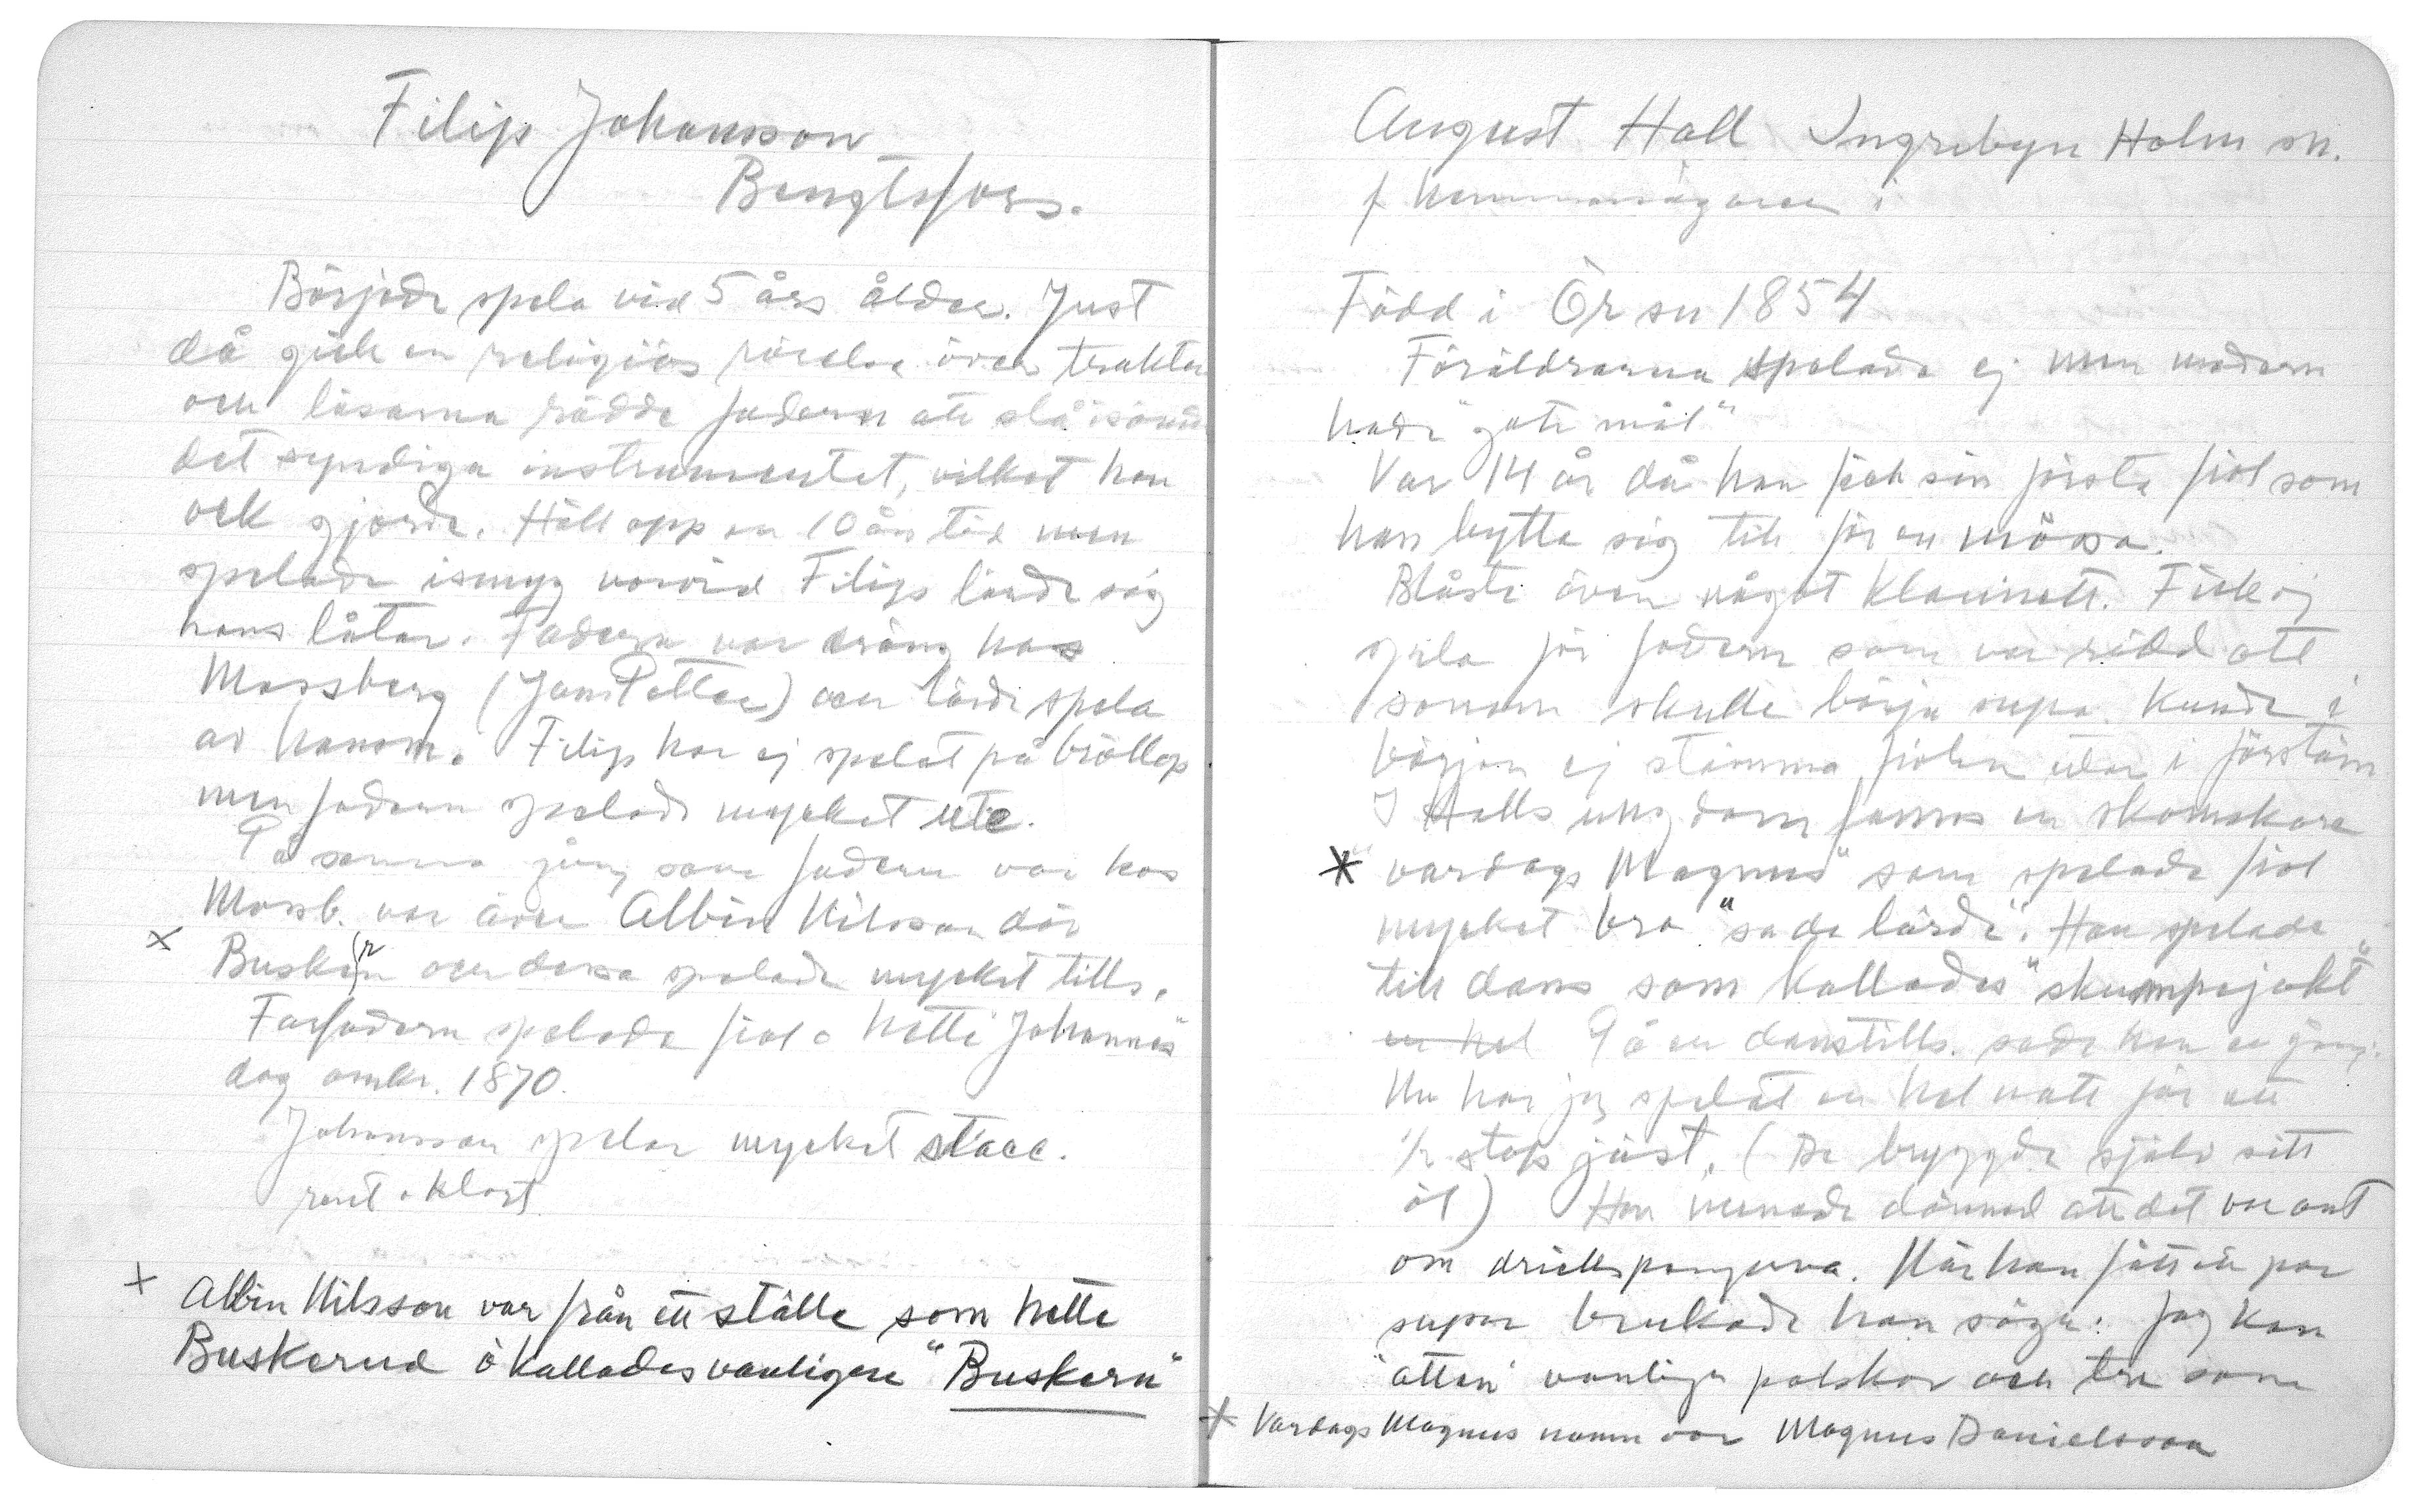 Filip Johansson
Bengtsfors.
Började spela vid 5 års ålder. Just
då gick en religiös rörelse över trakten
och läsarna rådde fadern att slå isönder
det syndiga instrumentet, vilket han
ock gjorde. Höll opp en 10 års tid men
spelade ismyg varvid Filip lärde sig
hans låtar. Fadern var dräng hos
Mossberg (Jans Petter) och lärde spela
av honom. Filip har ej spelat på bröllop
men fadern spelade mycket ute.
På samma gång som fadern var hos
Mossb. var även Albin Nilsson där
x Busker'n och dessa spelade mycket tills.
Farfadern spelade fiol o hette Johannes
dog omkr. 1870.
Johansson spelar mycket stacc.
rent o klart
x Albin Nilsson var från ett ställe som hette
Buskerud o kallades vanligare "Buskern"
August Hall Ingrebyn Holm sn.
f hemmansägaren i
Född i Ör sn 1854
Föräldrarna spelade ej men modern
hade "gott mål"
Var 14 år då han fick sin första fiol som
han bytte sig till för en mössa.
Blåste även något klarinett. Fick ej
spela för fadern som var rädd att
sonen skulle börja supa. Kunde i
början ej stämma fiolen utan i förstäm
I Halls ungdom fanns en skomakare
* "vardags Magnus" som spelade fiol
mycket bra "sa de lärde". Han spelade
till dans som kallades "skumpejakt"
en hel På en danstills. sade han en gång.
Nu har jag spelat en hel natt för ett
1/2 stop jäst. (De bryggde själv sitt
öl) Han menade därmed att det var ont
om drickspengarna. När han fått ett par
supar brukade han säga: Jag kan
"atten" vanliga polskor och tre som
* Vardags Magnus namn var Magnus Danielsson